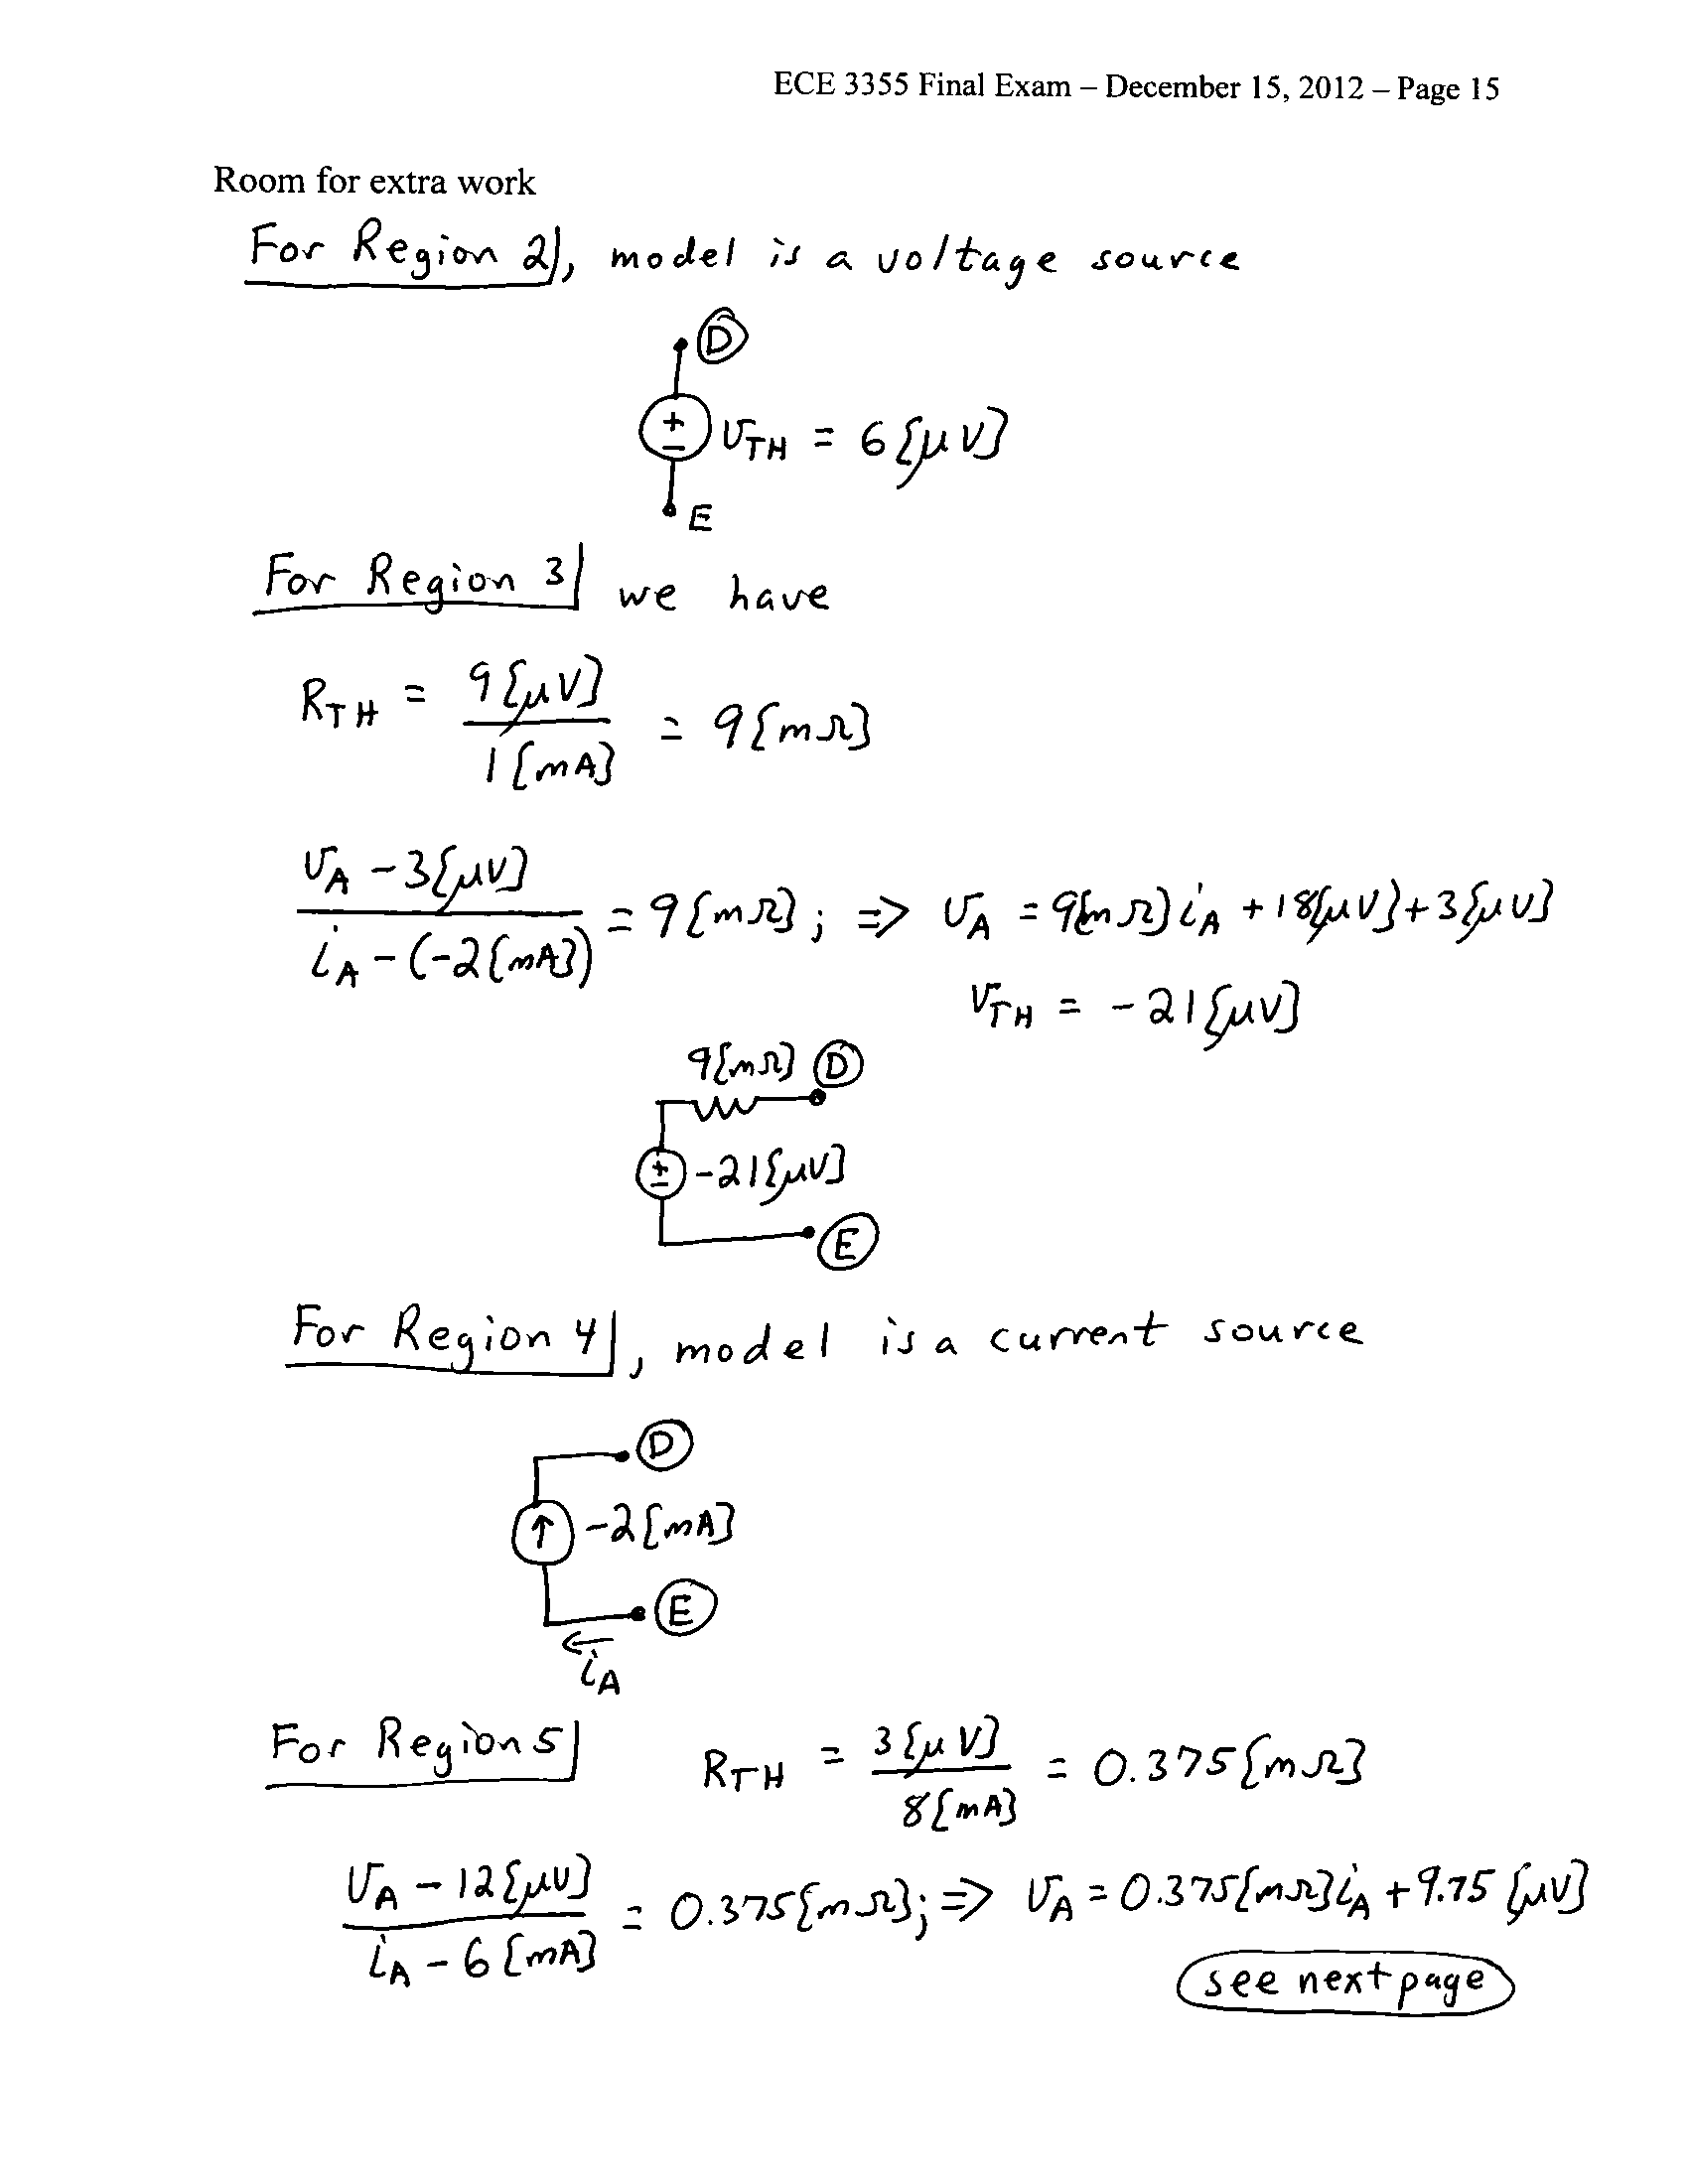 ECE 3355 Final Exam – December 15, 2012 – Page 15
Room for extra work
For Region 2, model is a voltage source
D
+
−
vTH = 6[μV]
E
For Region 3 we have
RTH = 9[μV] / 1[mA] = 9[mΩ]
vA − 3[μV] / iA − (−2[mA]) = 9[mΩ]; => vA = 9[mΩ]iA + 18[μV] + 3[μV]
vTH = −21[μV]
9[mΩ] D
± −21[μV]
E
For Region 4, model is a current source
D
↑ −2[mA]
E
← iA
For Region 5 RTH = 3[μV] / 8[mA] = 0.375[mΩ]
vA − 12[μV] / iA − 6[mA] = 0.375[mΩ]; => vA = 0.375[mΩ]iA + 9.75[μV]
see next page